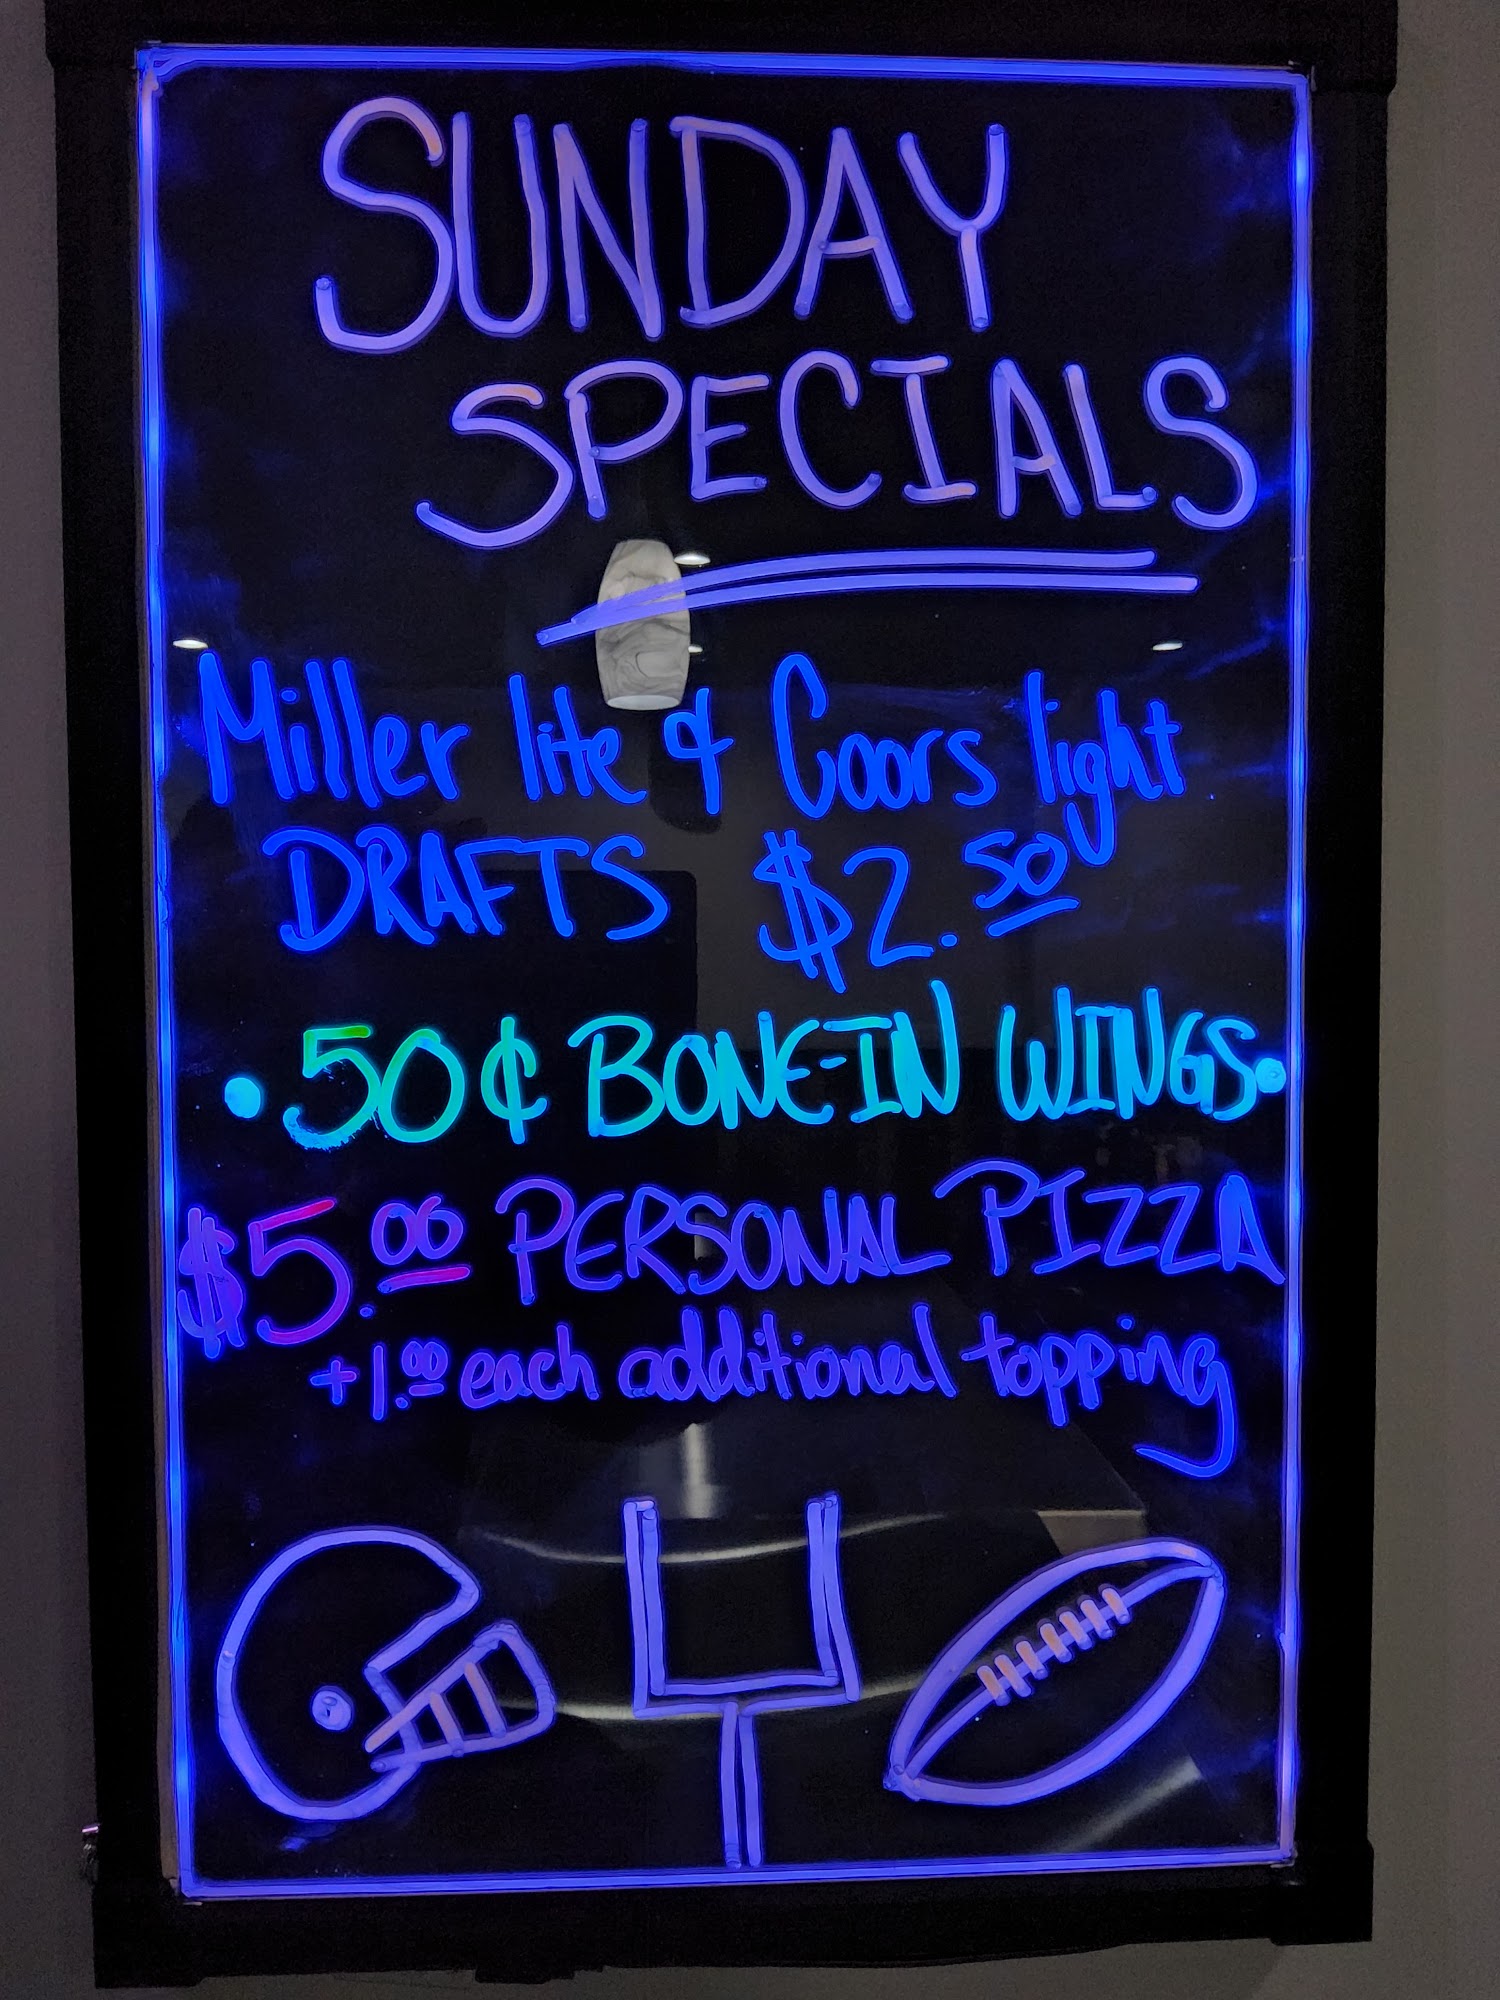 SUNDAY
SPECIALS
Miller lite & Coors light
DRAFTS $2.50
• 50¢ BONE-IN WINGS •
$5.00 PERSONAL PIZZA
+1.00 each additional topping